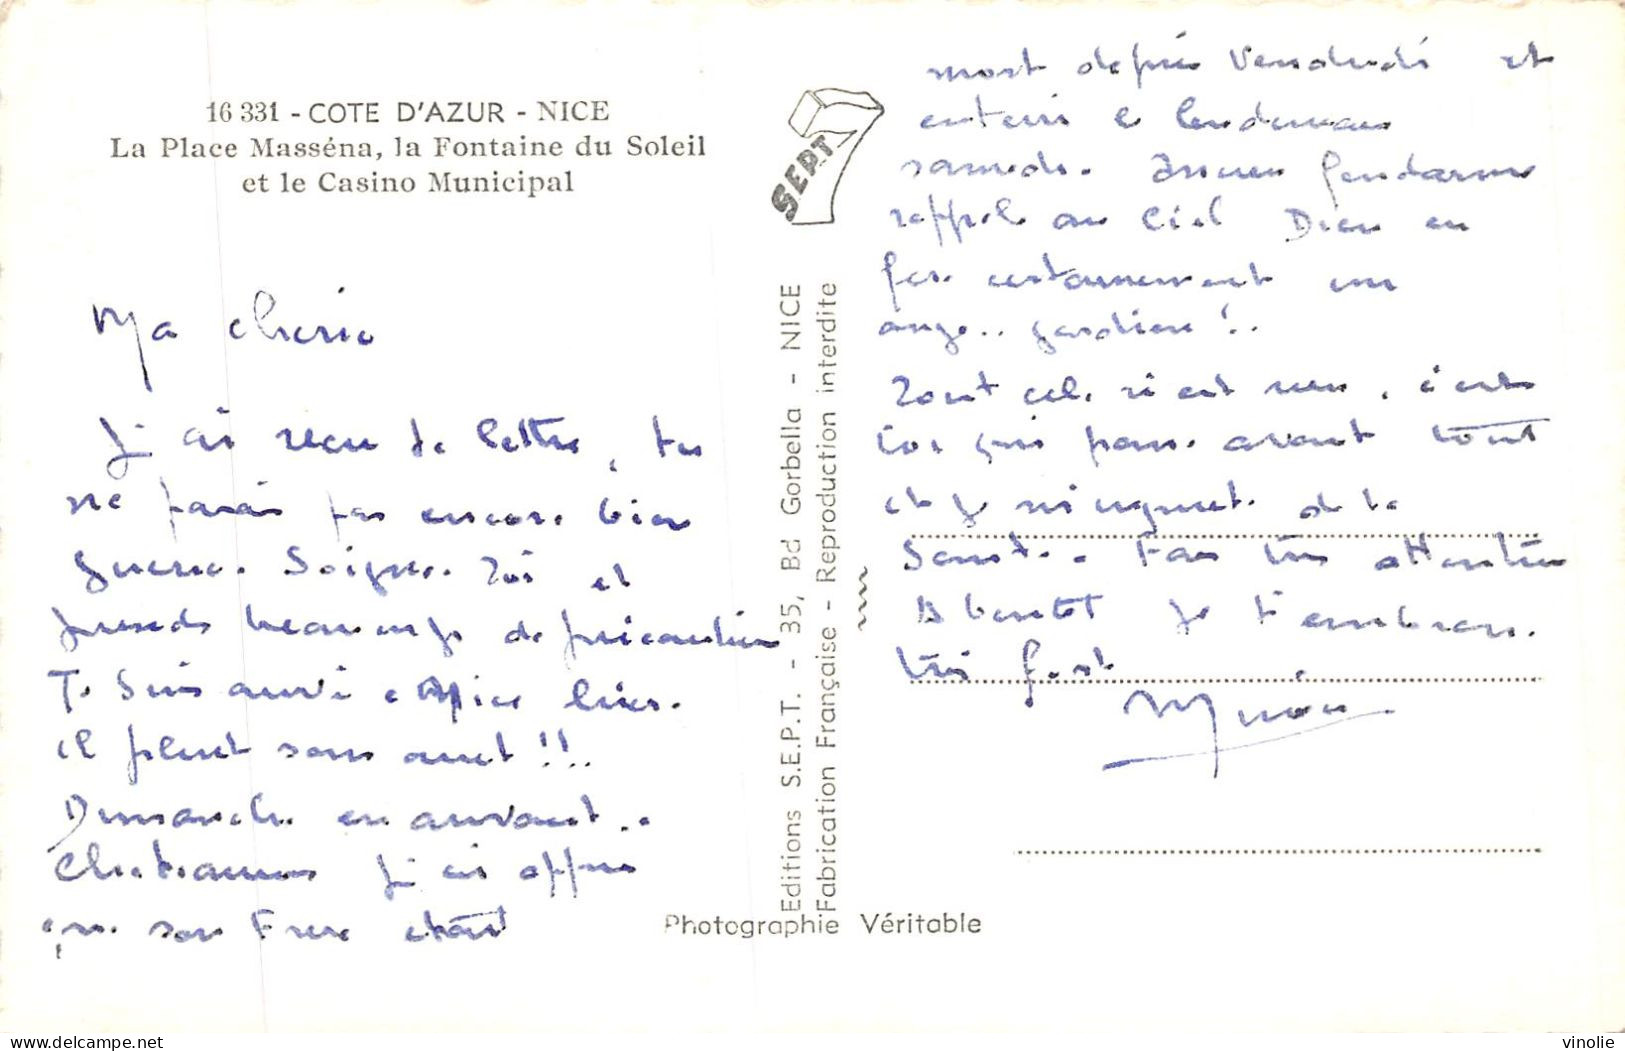 16 331 - COTE D'AZUR - NICE
La Place Masséna, la Fontaine du Soleil
et le Casino Municipal
Ma cherie
J'ai recu ta lettre, tu
ne parais pas encore bien
guerie. Soignes. Toi et
prends beaucoup de précaution
Je suis arrivé à Nice hier.
il pleut sans arret !!!
Dimanche en arrivant..
j'ai appris
que son Frere etait
SEPT
Editions S.E.P.T. - 35, Bd Gorbella - NICE
Fabrication Française - Reproduction interdite
Photographie Véritable
mort depuis Vendredi et
enterré le lendemain
samedi. Ancien Gendarme
rappelé au Ciel Dieu en
fera certainement un
ange.. gardien !..
Tout cela n'est rien, c'est
toi qui passe avant tout
et je m'inquiete de ta
Santé. Fais très attention
A bientôt je t'embrasse
très fort